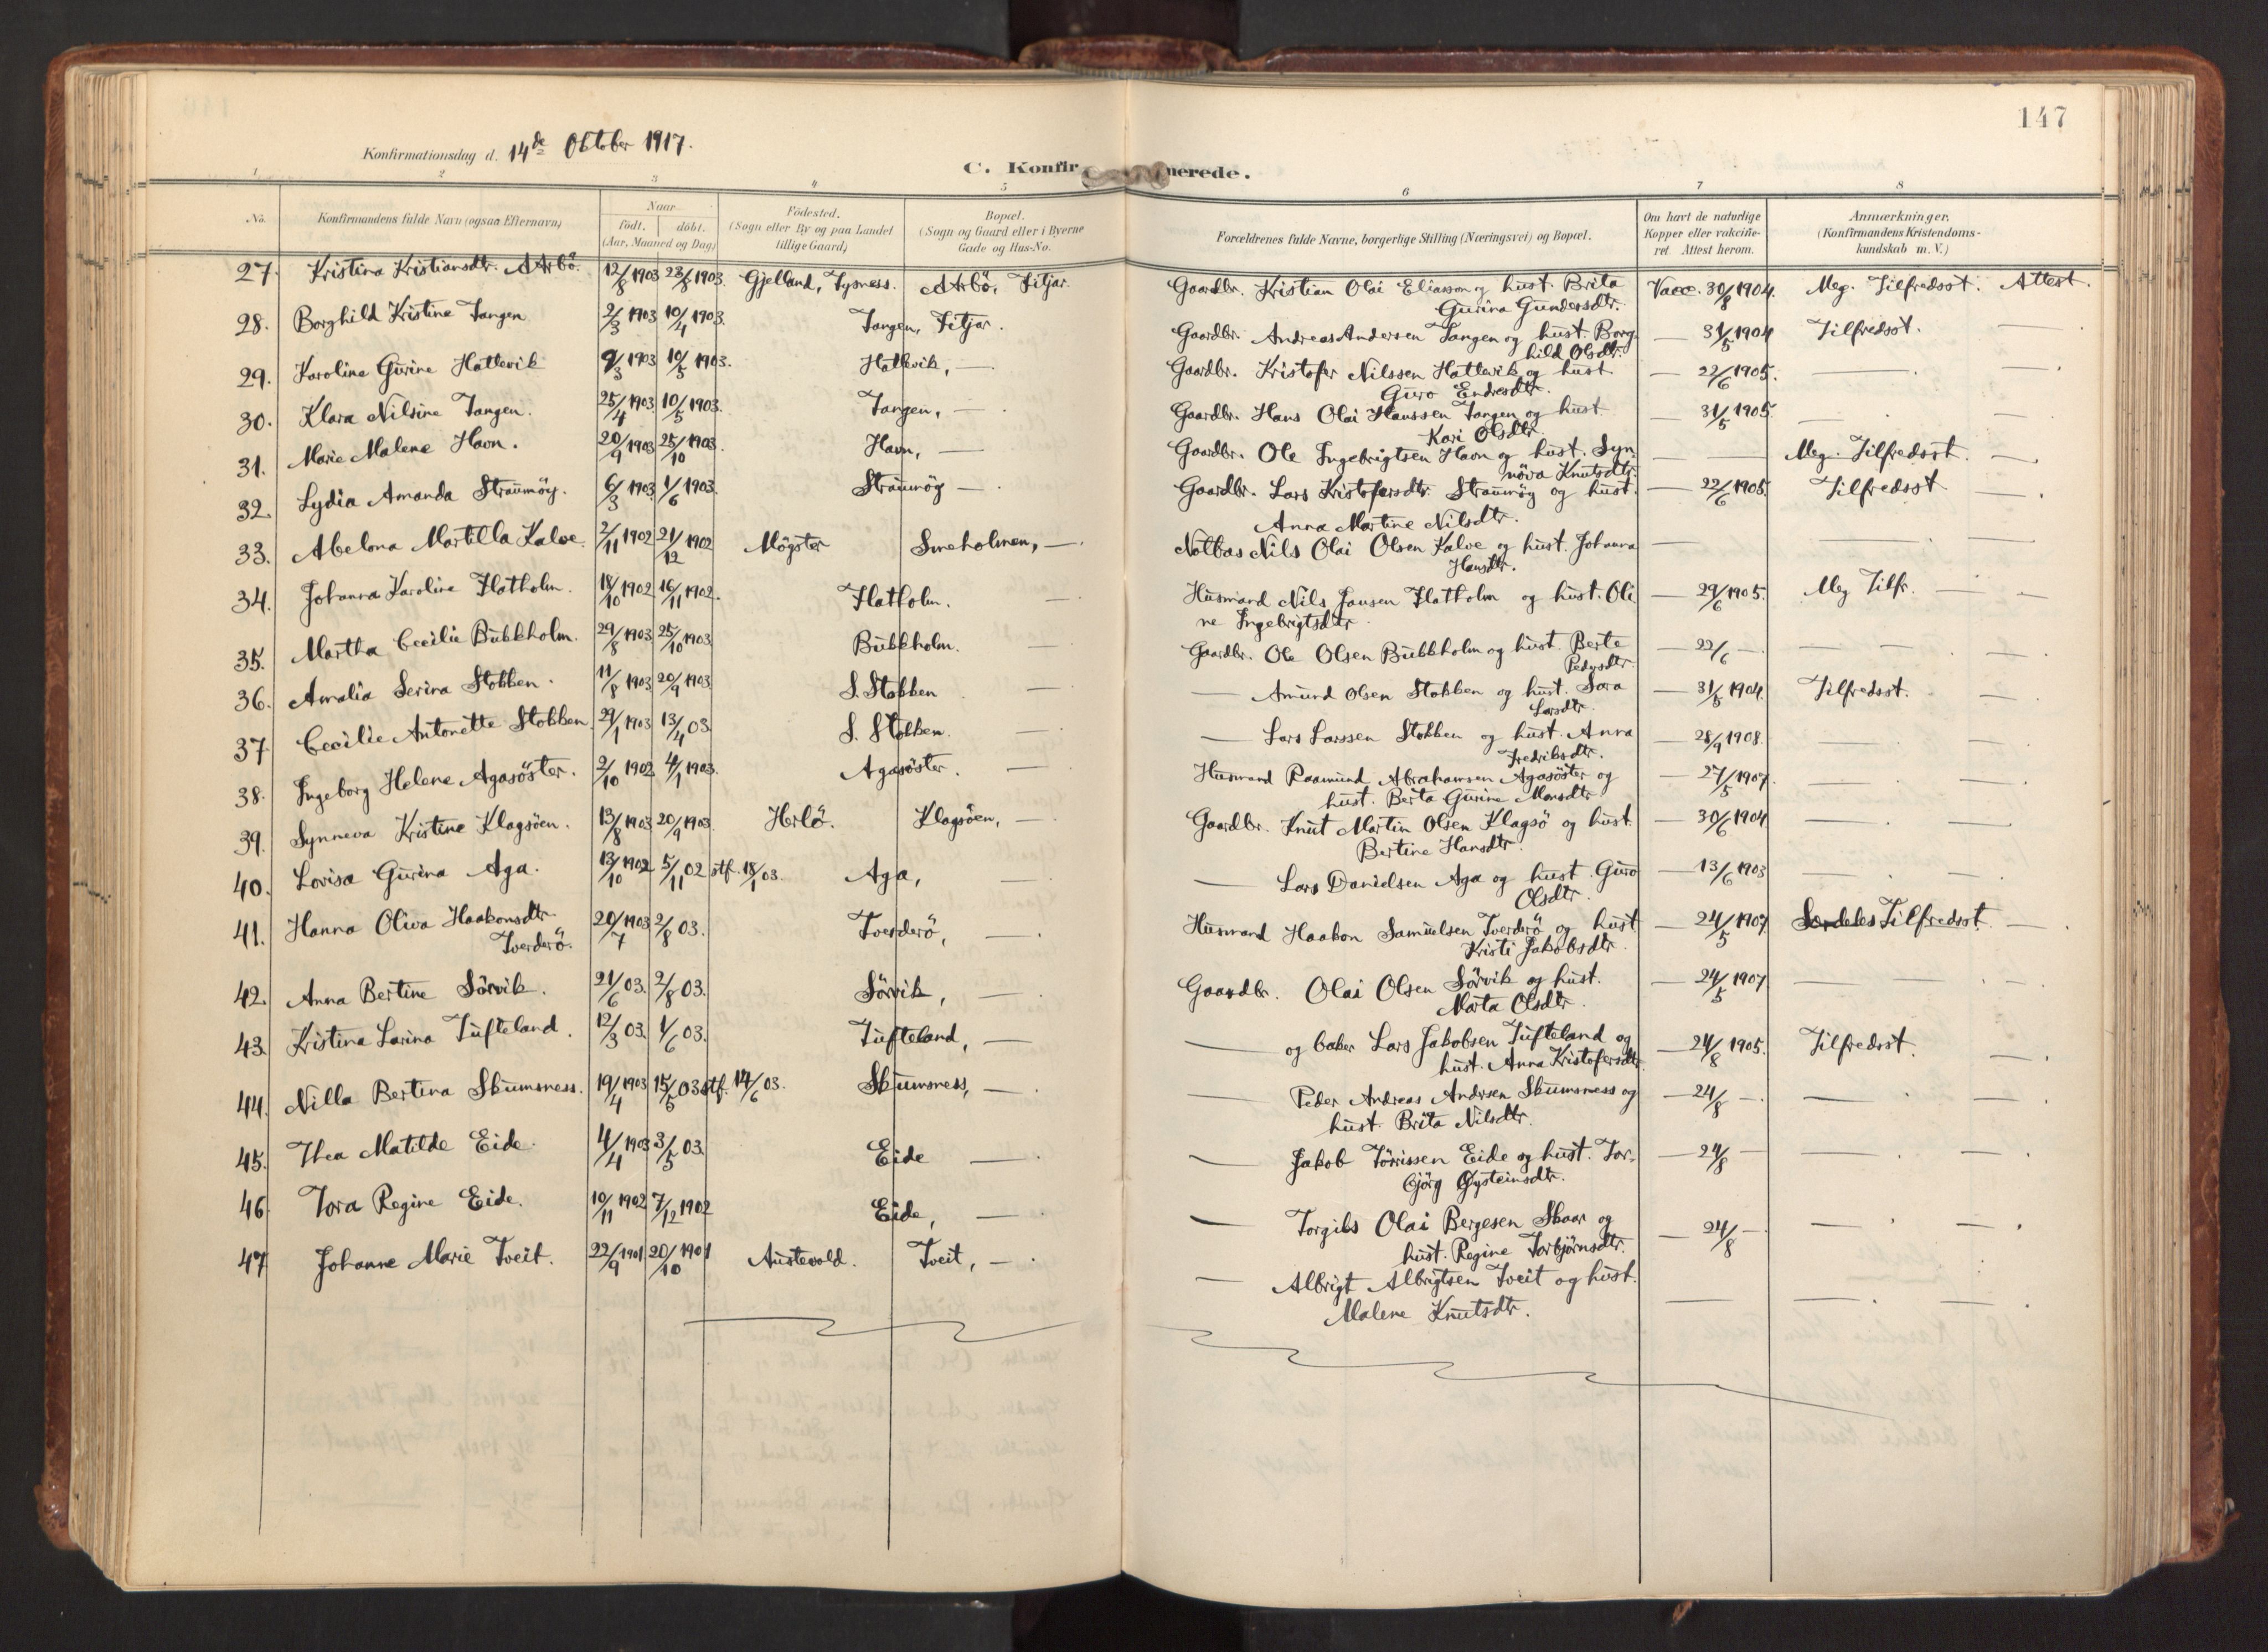 147
Konfirmationsdag d. 14de Oktober 1917.
C. Konfir merede.
1 2 3 4 5 6 7 8
No. Konfirmandens fulde Navn (ogsaa Efternavn) Naar födt, döbt. (Aar, Maaned og Dag) Födested. (Sogn eller By og paa Landet tillige Gaard) Bopæl. (Sogn og Gaard eller i Byerne Gade og Hus-No. Forældrenes fulde Navne, borgerlige Stilling (Næringsvei) og Bopæl. Om havt de naturlige Kopper eller vakcineret Attest herom. Anmærkninger. (Konfirmandens Kristendomskundskab m. V.)
27. Kristina Kristiansdtr. Aarbö. 12/8 1903 23/8 1903. Gjelland, Tysness. Aarbö, Fitjar. Gaardbr. Kristian Olai Eliasson og hust. Brita Vacc. 30/8 1904. Meg. Tilfredsst. Attest.
Gurina Gundersdtr.
28. Borghild Kristine Tangen 2/3 1903 10/4 1903. Tangen, Fitjar. Gaardbr. Andreas Andersen Tangen og hust. Borg- — 31/5 1904 Tilfredsst. —
hild Olsdtr.
29. Karoline Gurine Hattevik 9/3 1903 10/5 1903. Hattevik, — Gaardbr. Kristofer Nilssen Hattevik og hust — 22/6 1905. — —
Guro Endresdtr.
30. Klara Nilsine Tangen. 25/4 1903 10/5 1903. Tangen, — Gaardbr. Hans Olai Hanssen Tangen og hust. — 31/5 1905. — —
Kari Olsdtr.
31. Marie Malene Havn. 20/9 1903 25/10 1903. Havn, — Gaardbr. Ole Ingebrigtsen Havn og hust. Syn- — — Meg. Tilfredsst. —
növa Knutsdtr.
32. Lydia Amanda Straumöy. 6/3 1903 1/6 1903. Straumöy — Gaardbr. Lars Kristofersdtr. Straumöy og hust. — 22/6 1905. Tilfredsst —
Anna Martine Nilsdtr.
33. Abelona Martilla Kalve 2/11 1902 21/12 1902 Mögster Smeholmen, — Notbas Nils Olai Olsen Kalve og hust. Johanna — — —
Hansdtr.
34. Johanna Karoline Flatholm. 18/10 1902 16/11 1902. Flatholm. — Husmand Nils Jansen Flatholm og hust. Oli- — 29/6 1905. Meg Tilfr. — —
ne Ingebrigtsdtr.
35. Martha Cecilie Bukkholm. 29/8 1903 25/10 1903. Bukkholm. — Gaardbr. Ole Olsen Bukkholm og hust. Berte — 22/6 — — — —
Pedersdtr.
36. Amalia Serina Stokken. 11/8 1903 20/9 1903. S. Stokken — — Amund Olsen Stokken og hust. Sara — 31/5 1904. Tilfredsst. —
Larsdtr.
37 Cecilie Antonette Stokken 29/1 1903 13/4 03. S. Stokken. — — Lars Larssen Stokken og hust. Anna — 28/9 1908. — —
Fredriksdtr.
38. Ingeborg Helene Agasöster. 2/10 1902 4/1 1903. Agasöster. — Husmand Raamund Abrahamsen Agasöster og — 27/5 1907. — —
hust. Berta Gurine Monsdtr
39. Synneva Kristine Klagsöen. 13/8 1903 20/9 1903. Herlö. Klagsöen, — Gaardbr. Knut Martin Olsen Klagsö og hust. — 30/6 1904. — —
Bertine Hansdtr.
40. Lovisa Gurina Aga. 13/10 1902 5/11 02 stf. 18/1 03. Aga, — — Lars Danielsen Aga og hust. Guro — 13/6 1903 — —
Olsdtr.
41. Hanna Oliva Haakonsdtr. 20/7 1903 2/8 03. Tverderö, — Husmand Haakon Samuelsen Tverderö og hust — 24/5 1907 Særdeles Tilfredsst. —
Tverderö. Kristi Jakobsdtr.
42. Anna Bertine Sörvik. 21/6 03. 2/8 03. Sörvik, — Gaardbr. Olai Olsen Sörvik og hust. — 24/5 1907 — —
Marta Olsdtr.
43. Kristina Larina Tufteland. 12/3 03. 1/6 03. Tufteland, — — og baker Lars Jakobsen Tufteland og — 24/8 1905. Tilfredsst. —
hust. Anna Kristofersdtr.
44. Nilla Bertina Skumsness. 19/4 1903 15/5 03 stf. 14/6 03. Skumsness, — — Peder Andreas Andrsen Skumsness og — 24/8 — — —
hust. Brita Nilsdtr.
45. Thea Matilde Eide. 4/4 1903 3/5 03. Eide — — Jakob Törrissen Eide og hust. Tor- — 24/8 — — —
björg Øysteinsdtr.
46. Tora Regine Eide. 10/11 1902 7/12 1902 Eide, — — Torgils Olai Bergesen Skaar og — 24/8 — — —
hust. Regine Torbjörnsdtr.
47 Johanne Marie Tveit. 22/9 1901 20/10 1901 Austevold. Tveit, — — Albrigt Albrigtsen Tveit og hust. — — —
Malene Knutsdtr.